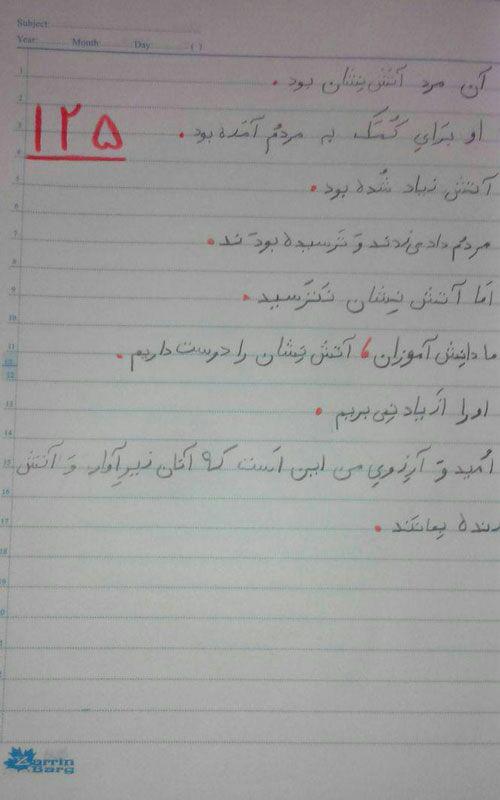 Subject:
Year: Month: Day: ( )
آن مرد آتش نِشان بود.
۱۲۵
او بَرایِ کُمَک به مردُم آمَده بود.
آتش زیاد شُده بود.
مردُم داد می‌زدند وَ تَرسیده بودَند.
اَما آتش نِشان نَتَرسید.
ما دانِش آموزان، آتش نِشان را دوست داریم.
او را اَز یاد نِمی بریم.
اُمید وَ آرِزویِ من این اَست که آنان زیرِ آوار وَ آتش
زنده بِمانَند.
1
2
3
4
5
6
7
8
9
10
11
12
13
14
15
16
17
18
Zarrin Barg